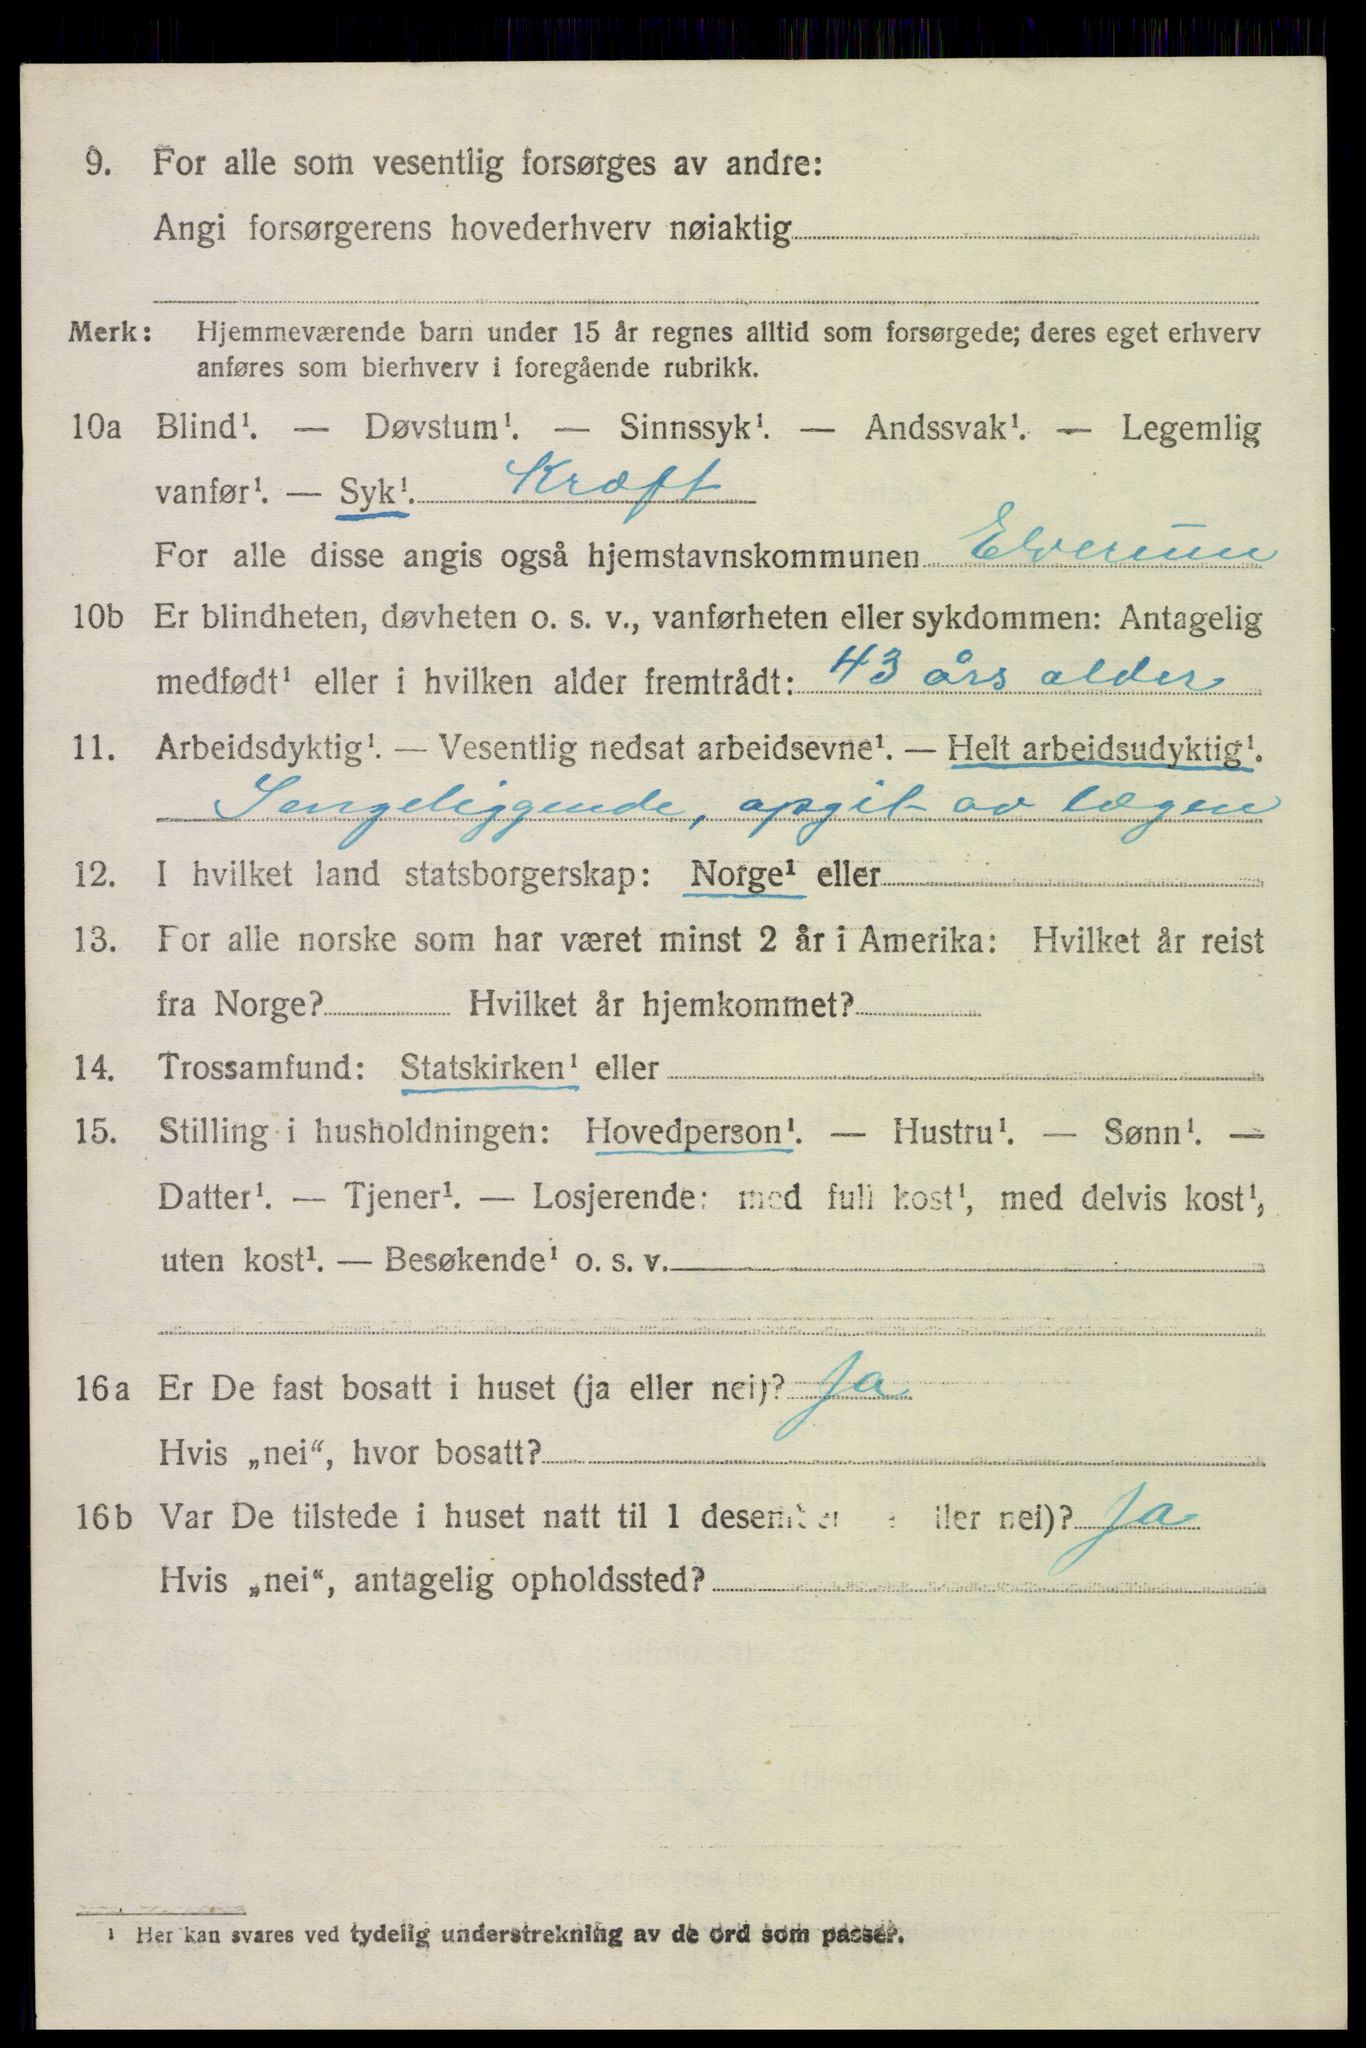 9. For alle som vesentlig forsørges av andre:
Angi forsørgerens hovederhverv nøiaktig
Merk: Hjemmeværende barn under 15 år regnes alltid som forsørgede; deres eget erhverv
anføres som bierhverv i foregående rubrikk.
10a Blind¹. — Døvstum¹. — Sinnssyk¹. — Andssvak¹. — Legemlig
vanfør¹. — Syk¹. Kræft
For alle disse angis også hjemstavnskommunen Elverum
10b Er blindheten, døvheten o. s. v., vanførheten eller sykdommen: Antagelig
medfødt¹ eller i hvilken alder fremtrådt: 43 års alder
11. Arbeidsdyktig¹. — Vesentlig nedsat arbeidsevne¹. — Helt arbeidsudyktig¹.
Sengeliggende, opgit av lægen
12. I hvilket land statsborgerskap: Norge¹ eller
13. For alle norske som har været minst 2 år i Amerika: Hvilket år reist
fra Norge? Hvilket år hjemkommet?
14. Trossamfund: Statskirken¹ eller
15. Stilling i husholdningen: Hovedperson¹. — Hustru¹. — Sønn¹. —
Datter¹. — Tjener¹. — Losjerende: med full kost¹, med delvis kost¹,
uten kost¹. — Besøkende¹ o. s. v.
16a Er De fast bosatt i huset (ja eller nei)? Ja
Hvis „nei“, hvor bosatt?
16b Var De tilstede i huset natt til 1 desember eller nei)? Ja
Hvis „nei“, antagelig opholdssted?
¹ Her kan svares ved tydelig understrekning av de ord som passer.